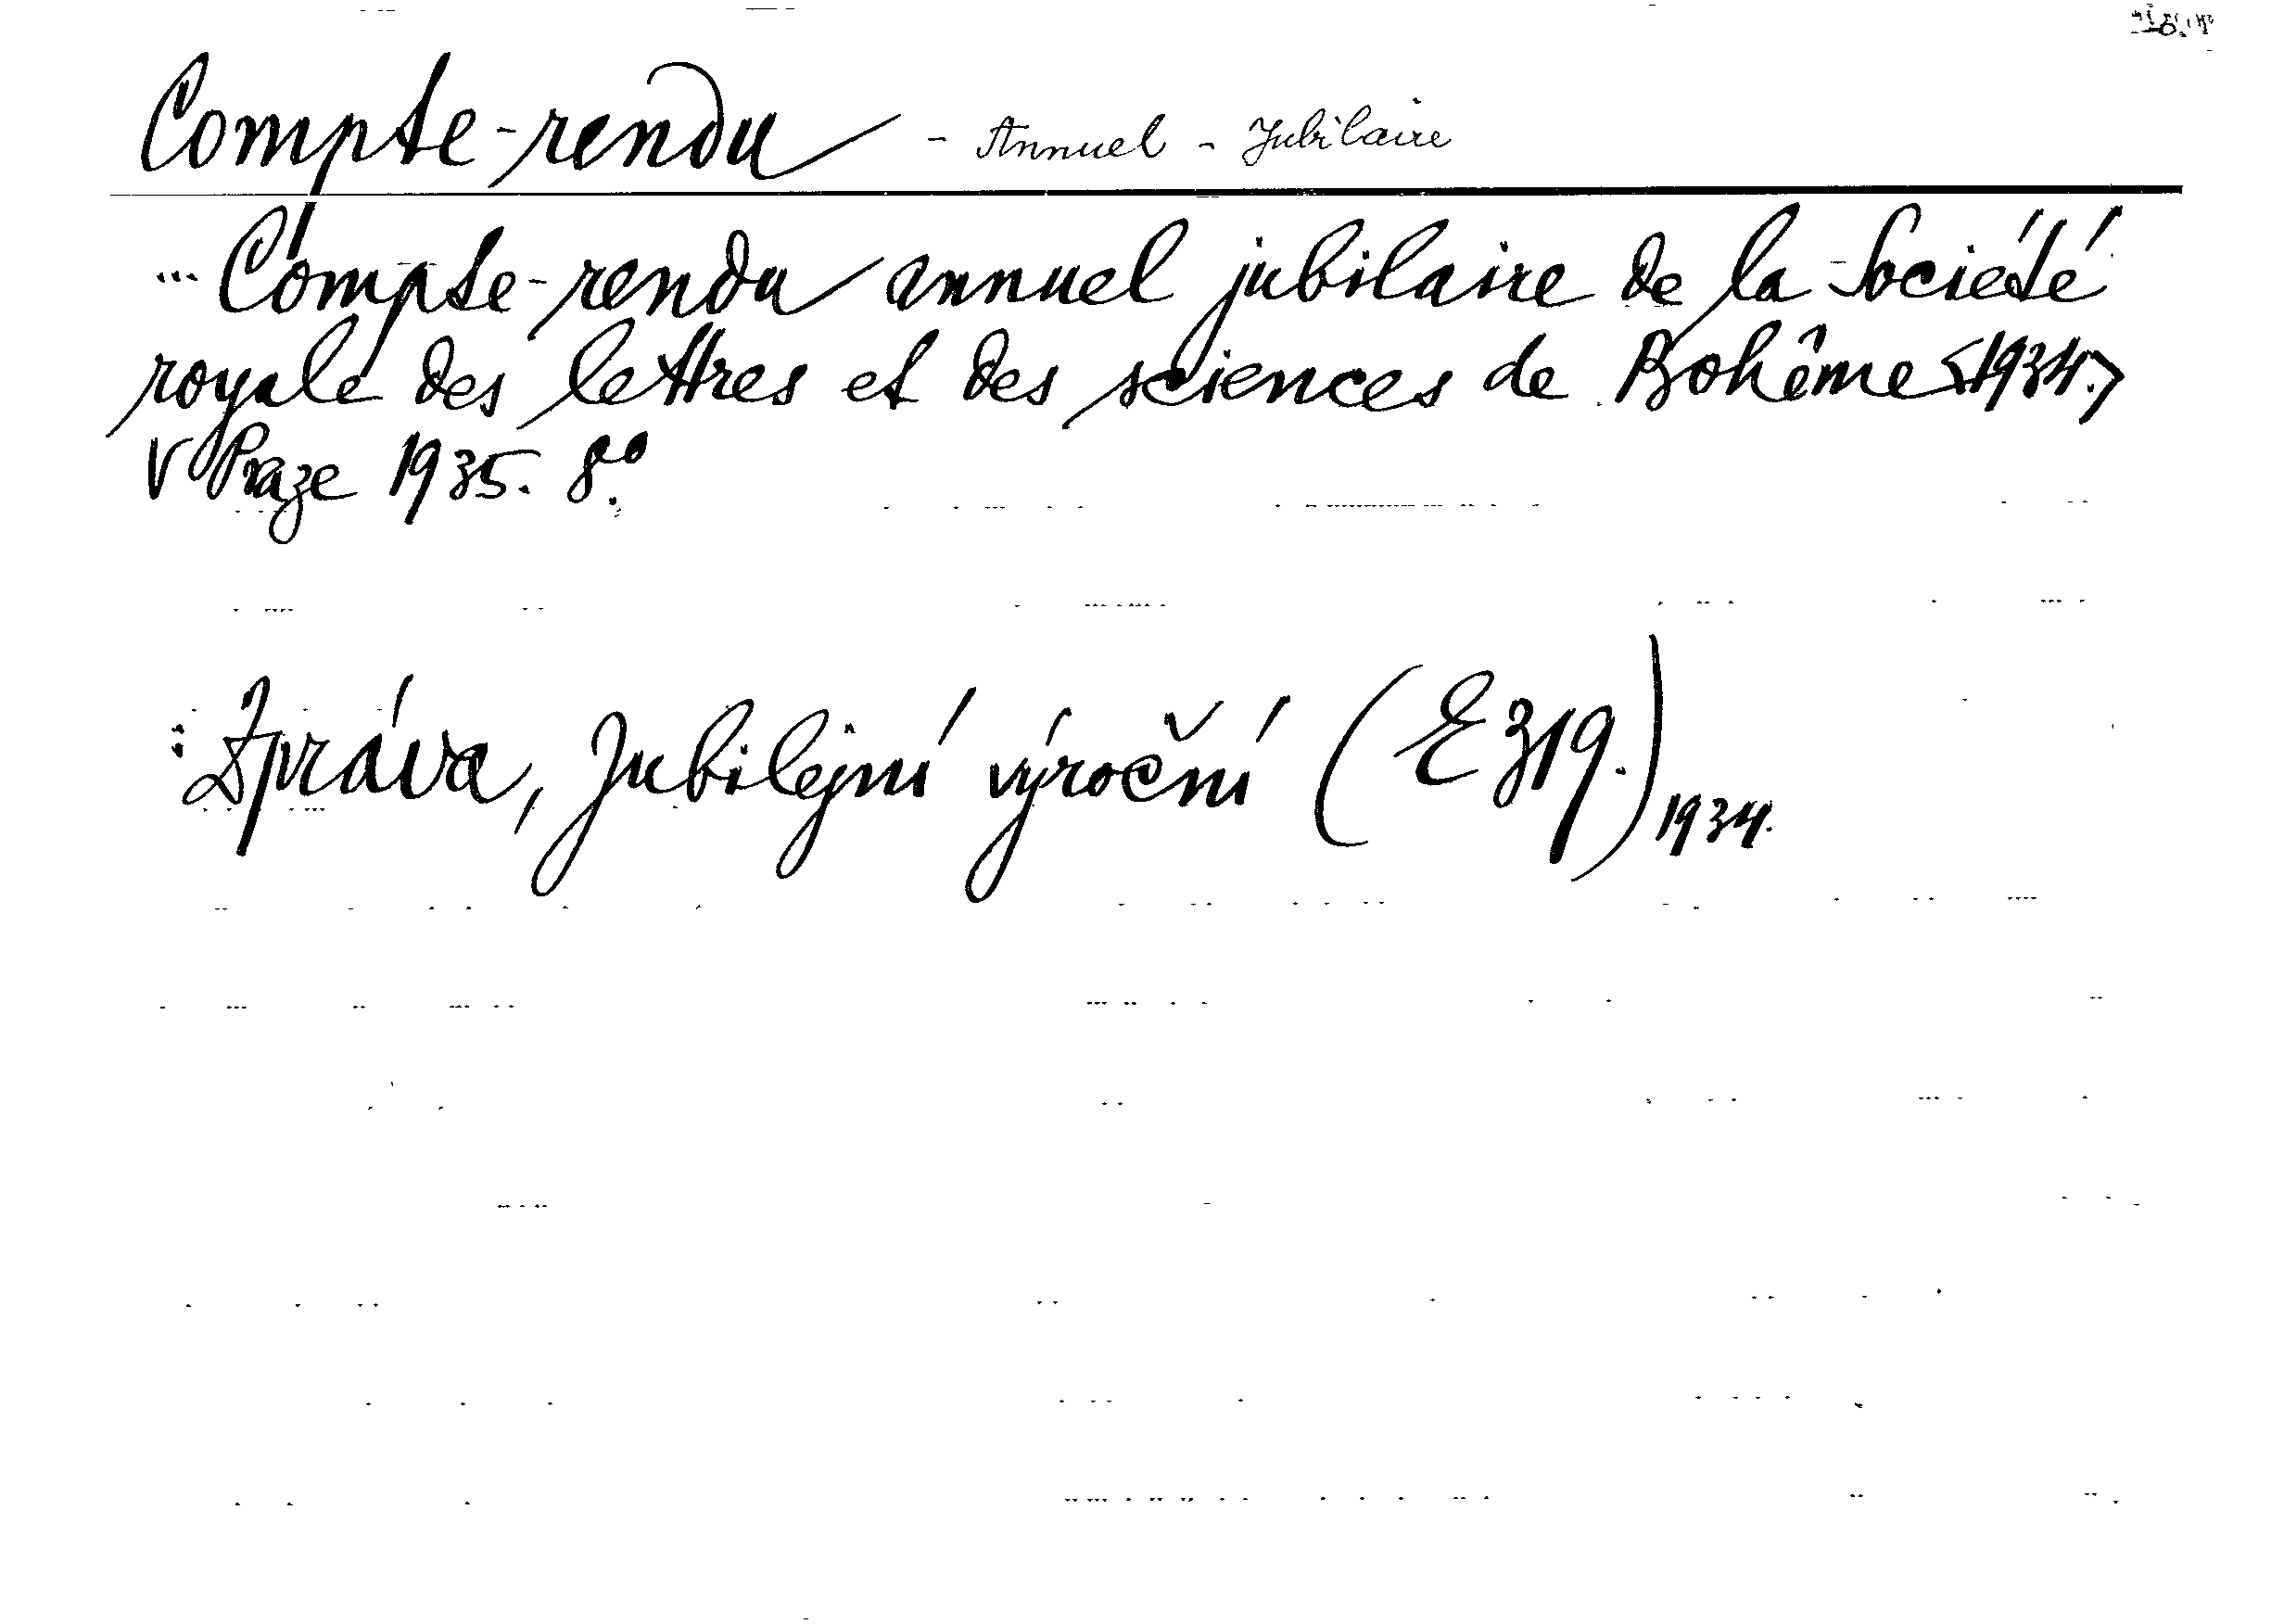 Compte-rendu - Annuel - Jubilaire
... Compte-rendu annuel jubilaire de la Société
royale des lettres et des sciences de Bohême <1934.>
V Praze 1935. 8°.
: Zpráva, Jubilejní výroční (E 319.) 1934.